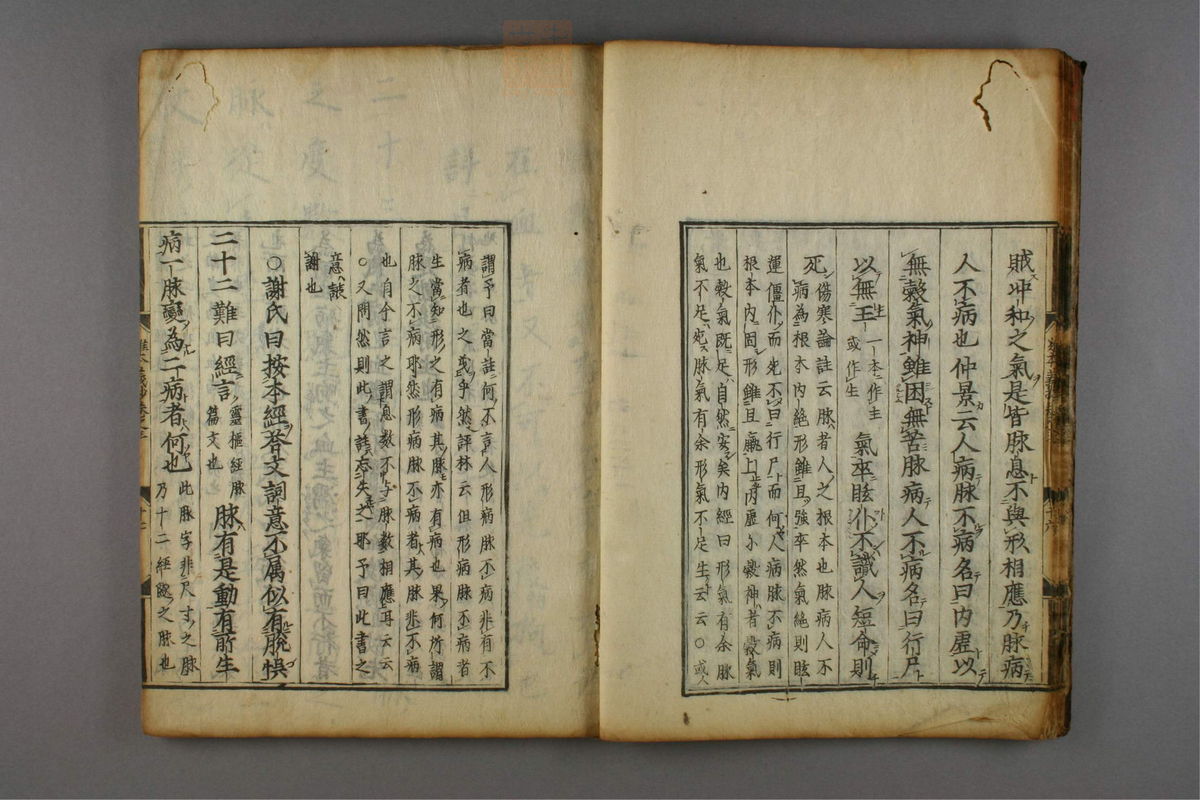 賊冲和之氣是皆脉息不與形相應乃脉病
人不病也仲景云人病脉不病名曰内虚以
無穀氣神雖困無苦脉病人不病名曰行尸
以無王一本作生或作主氣卒眩仆不識人短命則
死傷寒論註云脉者人之根本也脉病人不
病為根本内絶形雖且強卒然氣絶則眩
運僵仆而死不曰行尸而何人病脉不病則
根本内固形雖且羸止内虚尓穀神者穀氣
也穀氣既足自然安矣内經曰形氣有余脉
氣不足死脉氣有余形氣不足生云云○或人
謂予曰當註何不言人形病脉不病非有不
病者也之或乎然評林云但形病脉不病者
生當知形之有病其脉亦有病也果何所謂
脉之不病耶然形病脉不病者其脉非不病
也自今言之謂息数不中寸脉數相應耳云云
○又問然則此書註本失之耶予曰此書之
意詼
謝也
○謝氏曰按本經荅文詞意不属似有脱悞
二十二難曰經言靈樞經脉篇文也脉有是動有所生
病一脉變為二病者何也此脉字非尺寸之脉乃十二經隧之脉也